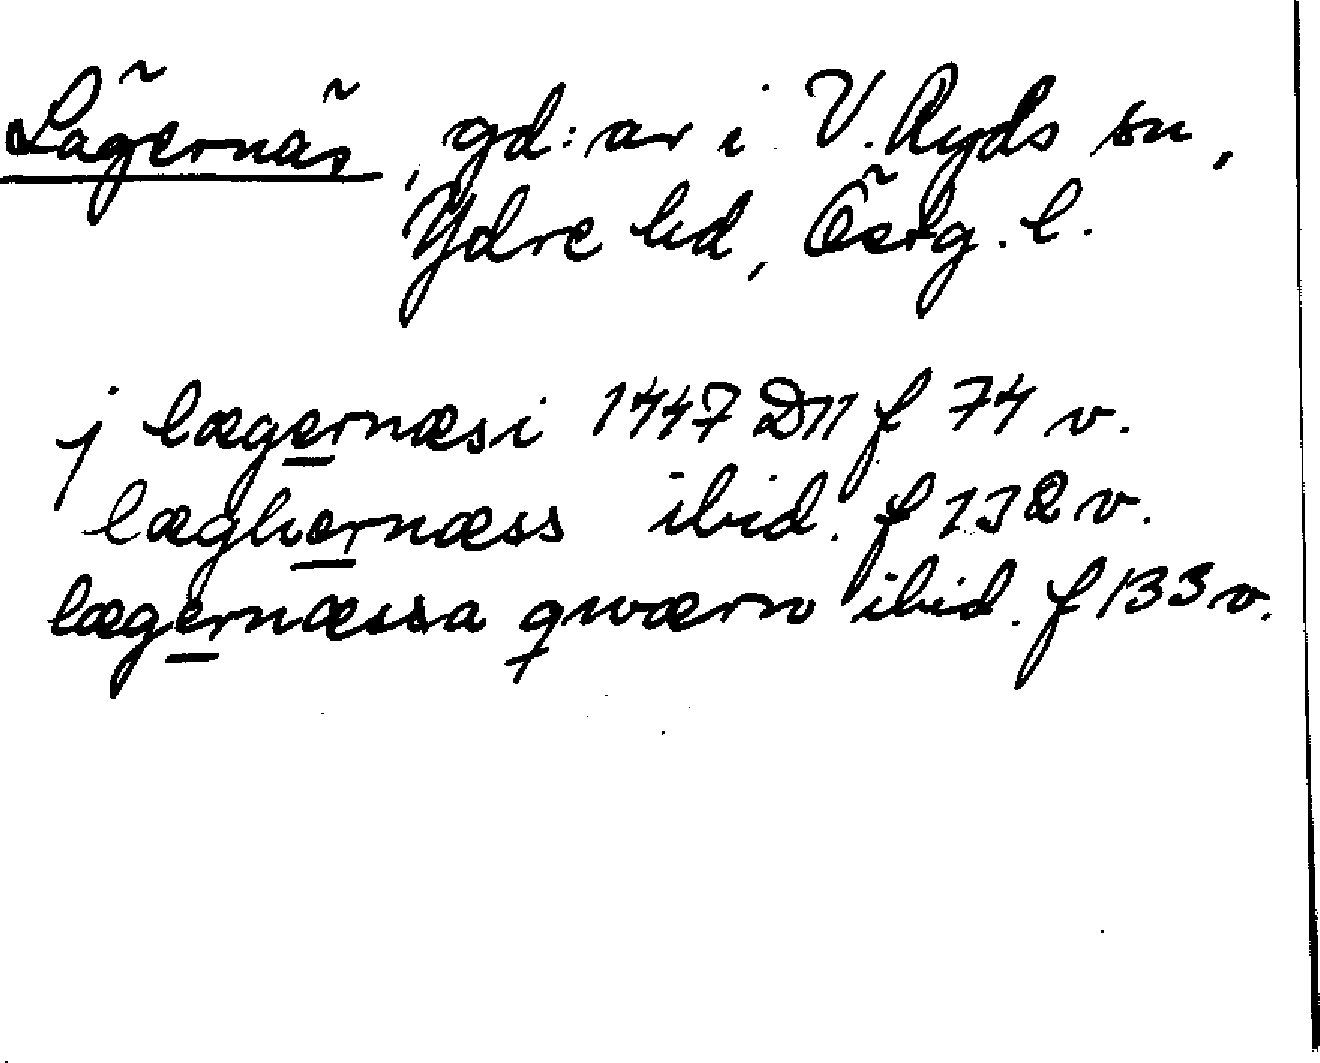 Lägernäs, gd:ar i V. Ryds sn,
Ydre hd, Östg. l.
j lægernæsi 1447 D11 f 74 v.
læghernæss ibid. f 132 v.
lægernæssa qwærn ibid. f 133 v.